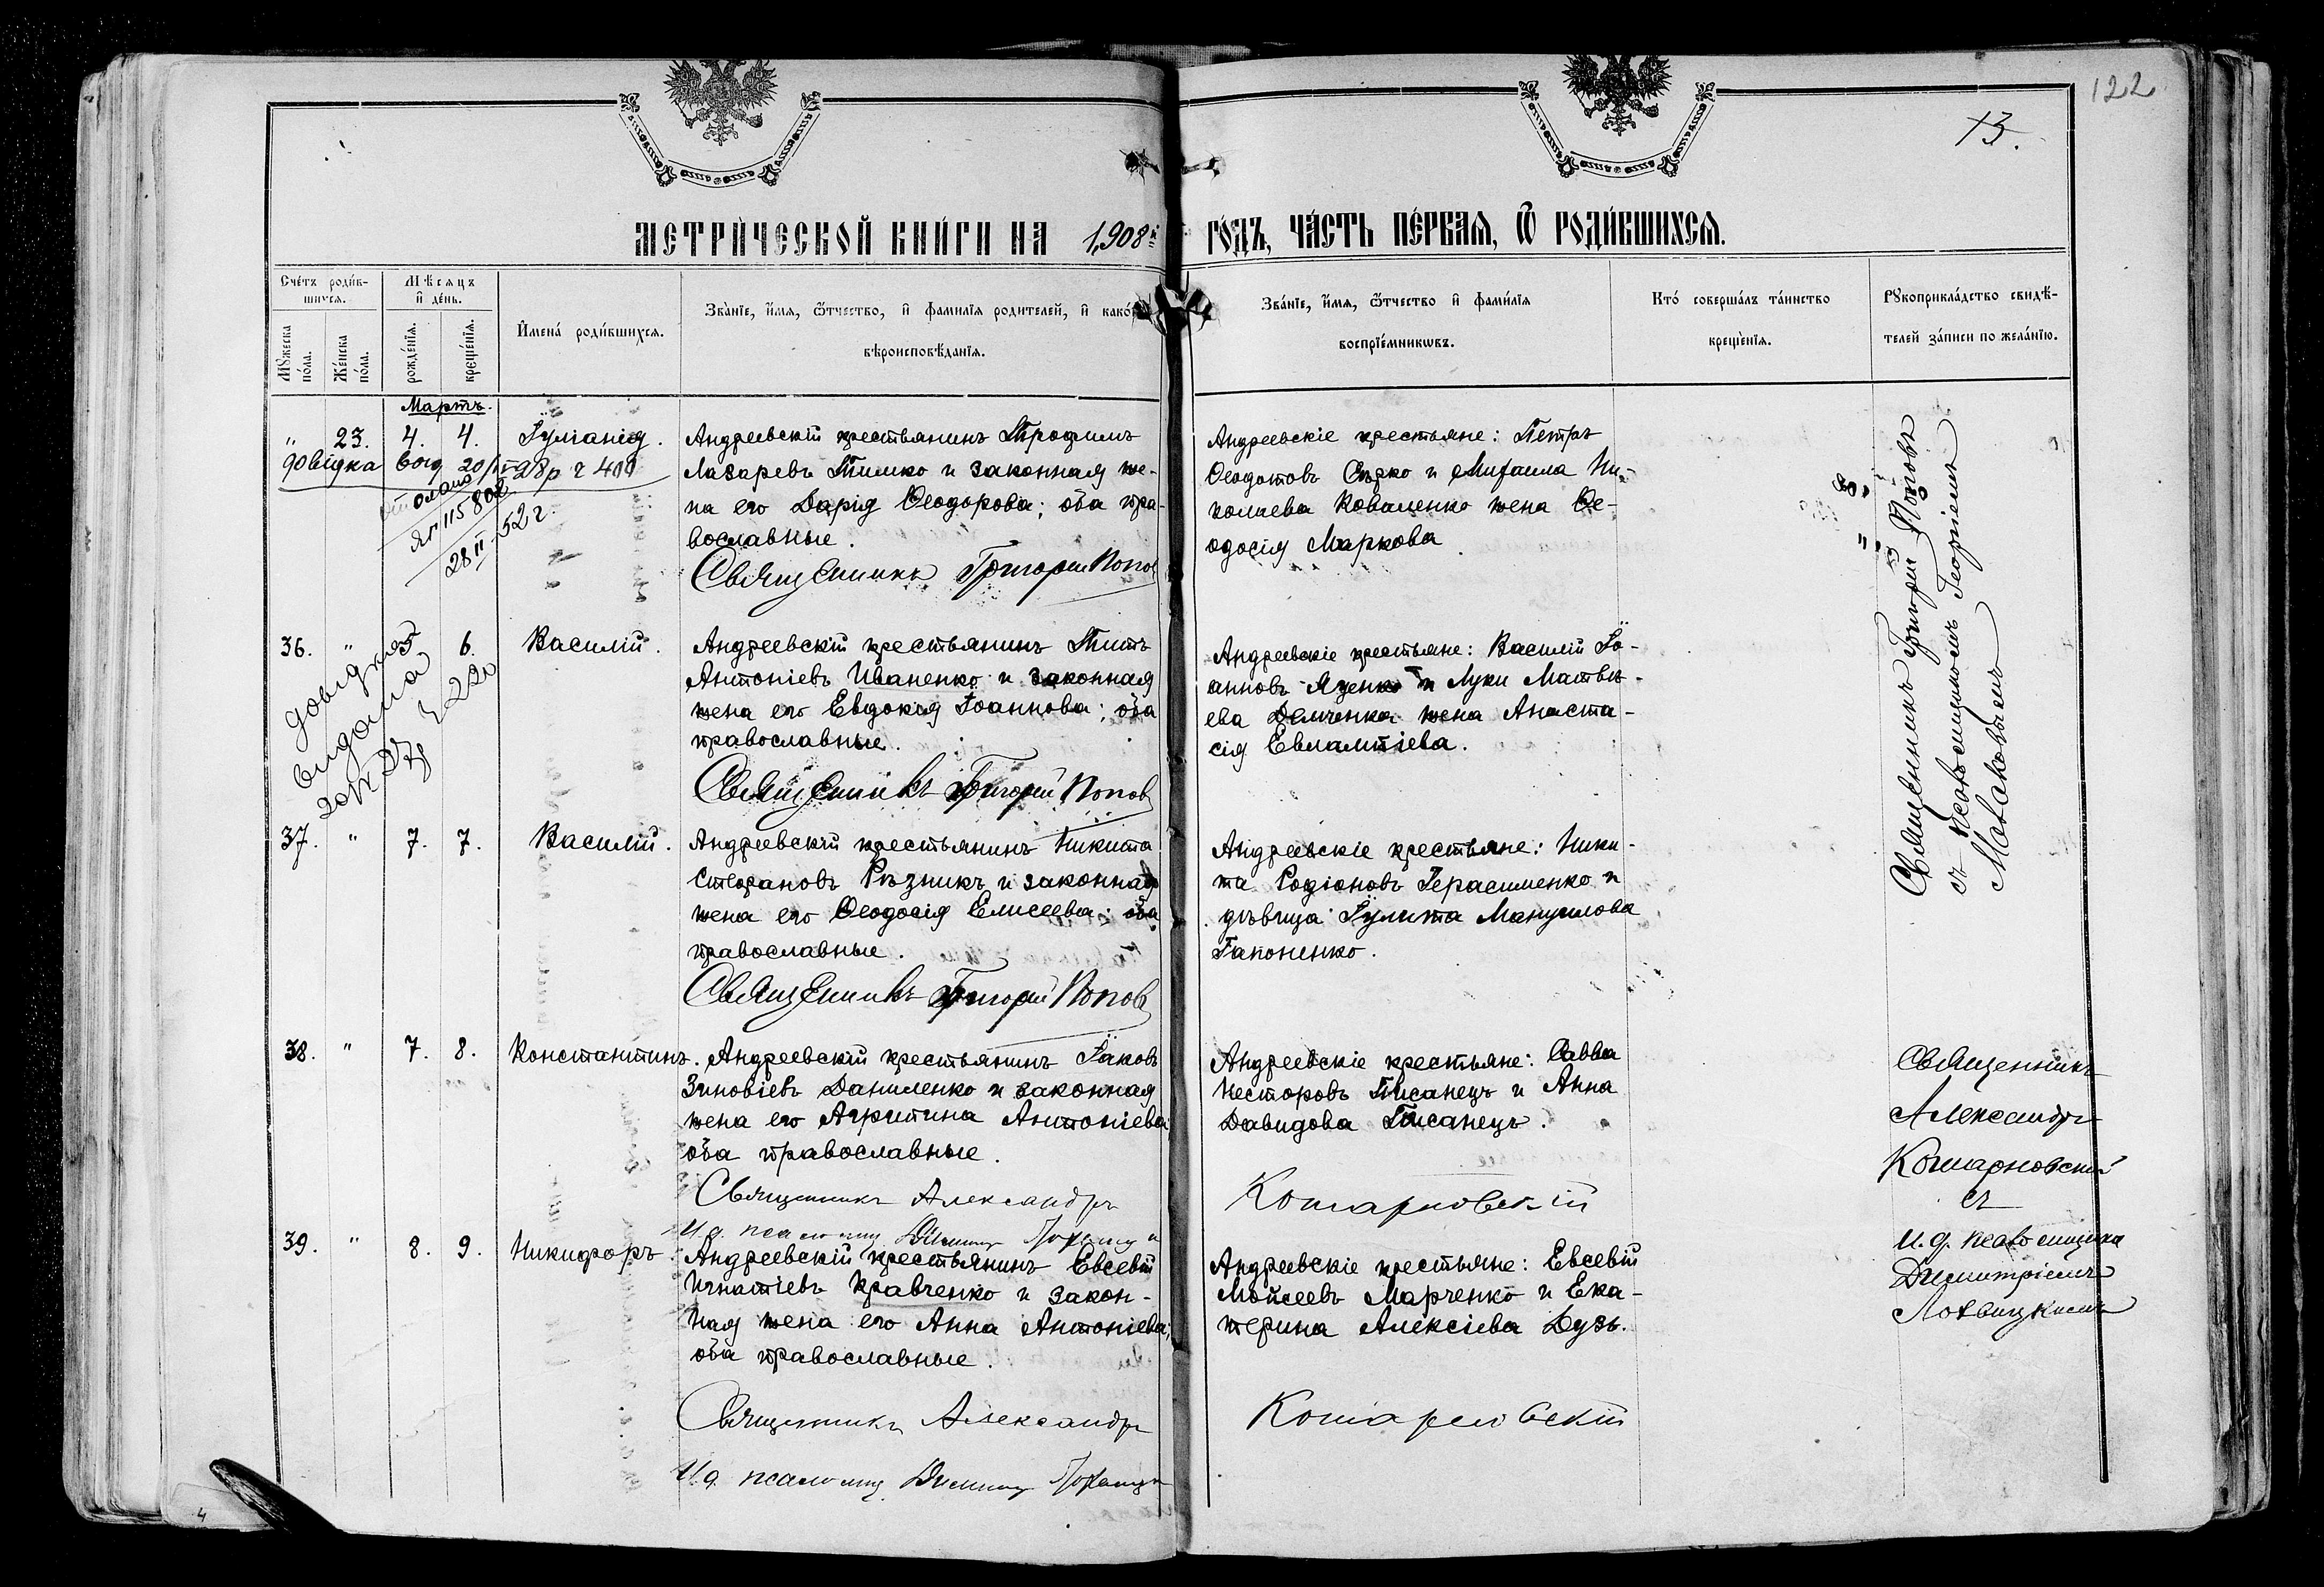 122
13.
МЕТРИ́ЧЕСКОЙ КНИ́ГИ НА 1908й ГО́ДЪ, ЧА́СТЬ ПЕ́РВАЯ, Ѿ РОДИ́ВШИХСЯ.
Сче́тъ роди́в-
шихся.
Мꙋ́жеска
по́ла.
Же́нска
по́ла.
Мѣ́сяцъ
и де́нь.
рожде́нїя.
креще́нїя.
И҆мена́ роди́вшихся.
Зва́нїе, и҆́мя, ѻ҆́тчество, и҆ фамилїя родителей, и҆ како́й
вѣроисповѣ́данїя.
Зва́нїе, и҆́мя, ѻ҆́тчество и҆ фами́лїя
воспрїе́мникѡвъ.
Кто́ соверша́лъ та́инство
креще́нїя.
Рꙋкоприкла́дство свидѣ́-
телей за́писи по жела́нїю.
Мартъ.
" 23. 4. 4. Іуліанія.
Андреевскій крестьянинъ Трофимъ
Лазаревъ Тимко и законная же-
на его Дарія Ѳеодорова; оба пра-
вославные.
Священникъ Григорій Попов
Андреевскіе крестьяне: Петръ
Ѳеодотовъ Сѣрко и Михаила Ни-
колаева Коваленко жена Ѳе-
одосія Маркова
28 II 52 г.
36. " 5. 6. Василій.
довідка
видана
Андреевскій крестьянинъ Титъ
Антоніевъ Иваненко и законная
жена его Евдокія Іоаннова; оба
православные.
Священникъ Григорій Попов
Андреевскіе крестьяне: Василій Іо-
анновъ Яценко и Луки Матвѣ-
ева Демченка жена Анаста-
сія Евлампіева.
Священникъ Григорій Поповъ
съ псаломщикомъ Георгіемъ
Маковѣемъ
37. " 7. 7. Василій.
Андреевскій крестьянинъ Никита
Стефановъ Рѣзникъ и законная
жена его Ѳеодосія Елисеева; оба
православные.
Священникъ Григорій Попов
Андреевскіе крестьяне: Ники-
та Родіоновъ Герасименко и
дѣвица Іулита Мануилова
Гапоненко.
38. " 7. 8. Константинъ.
Андреевскій крестьянинъ Іаковъ
Зиновіевъ Даниленко и законная
жена его Агрипина Антоніева
оба православные.
Священникъ Александръ Комарновскій
И. д. псаломщ.
Андреевскіе крестьяне: Савва
Несторовъ Писанецъ и Анна
Давидова Писанецъ.
Священникъ
Александръ
Комарновскій
съ
и. д. псаломщика
Димитріемъ
Лохвицкимъ
39. " 8. 9. Никифоръ
Андреевскій крестьянинъ Евсевій
Игнатіевъ Кравченко и закон-
ная жена его Анна Антоніева;
оба православные.
Священникъ Александръ Комарновскій
И. д. псаломщ.
Андреевскіе крестьяне: Евсевій
Мойсеевъ Марченко и Ека-
терина Алексіева Дузь.
4